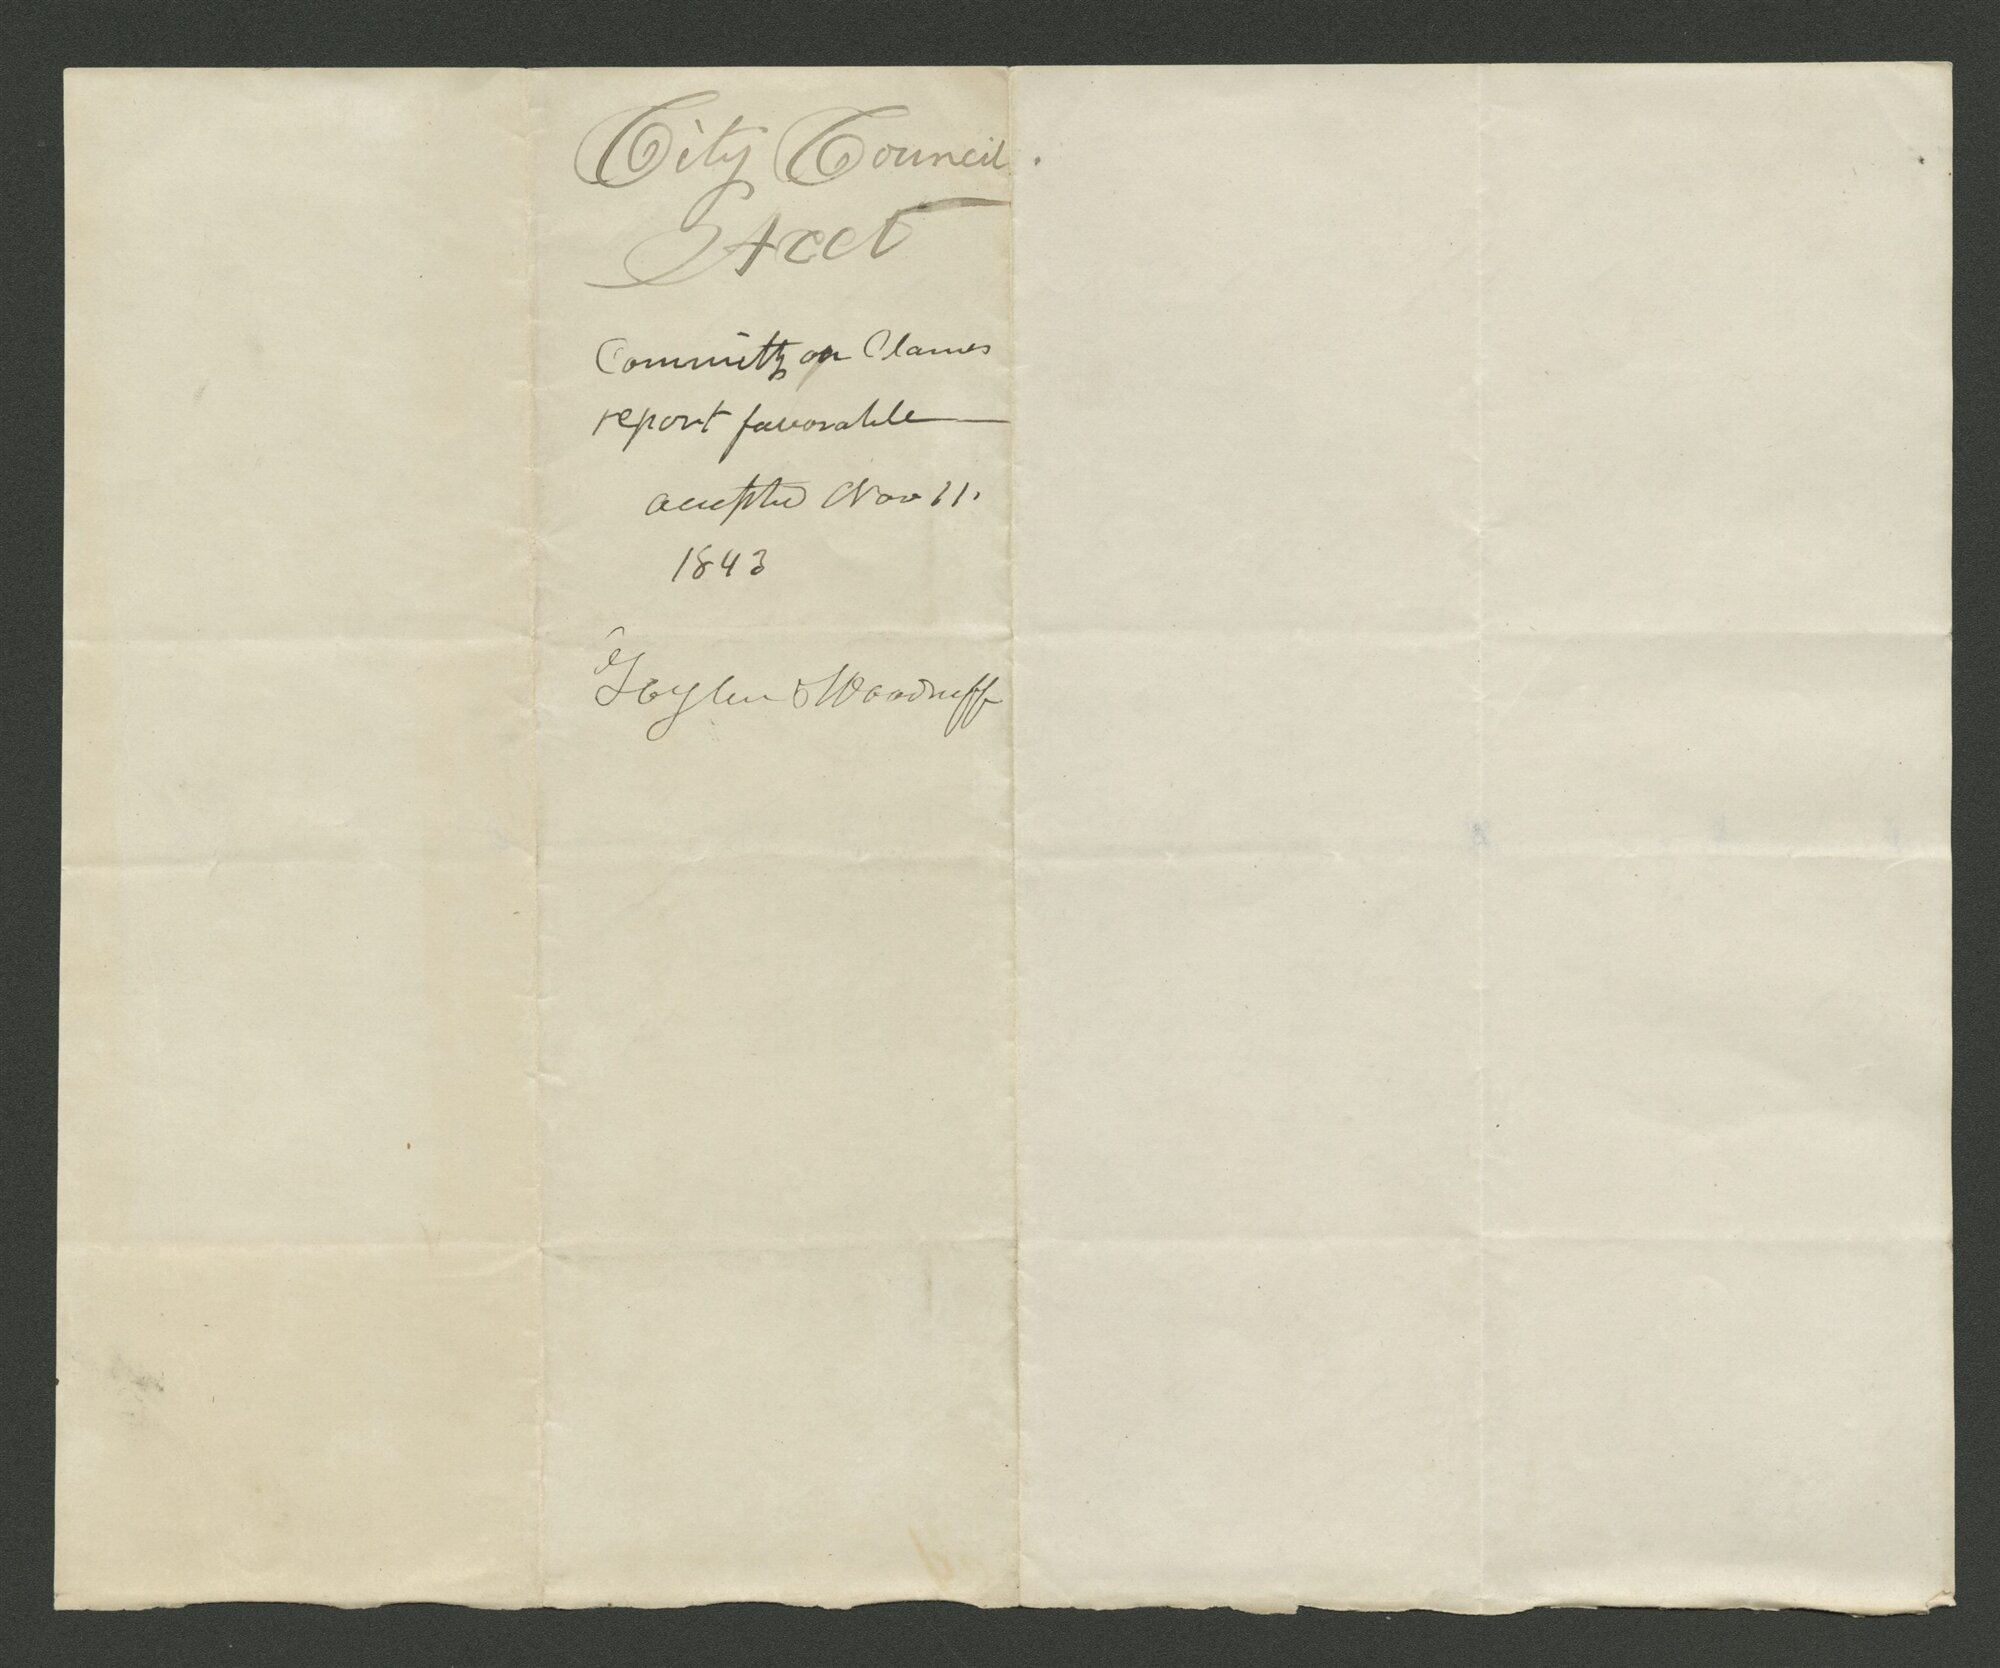 City Council.
Acct
Committy on Clames
report favorable
accepted Nov 11.
1843
Woodruff